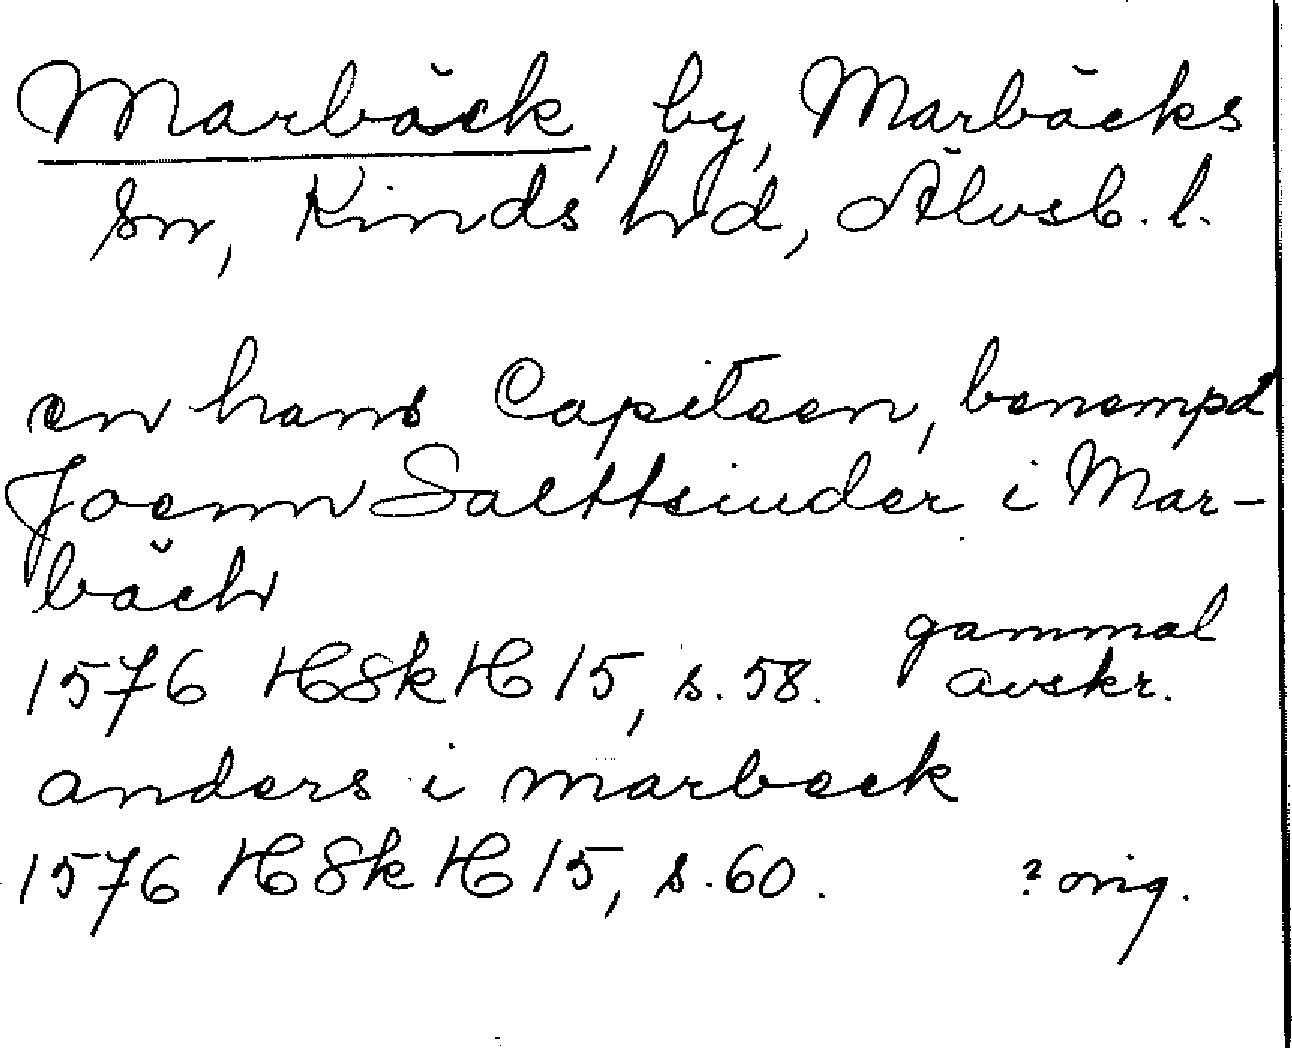 Marbäck, by, Marbäcks
sn, Kinds hd, Älvsb. l.
en hans Capiteen, benempd
Joenn Salttsiuder i Mar-
bäch
gammal
1576 HSkH 15, s. 58. avskr.
anders i marbeck
1576 HSkH 15, s. 60. ? orig.